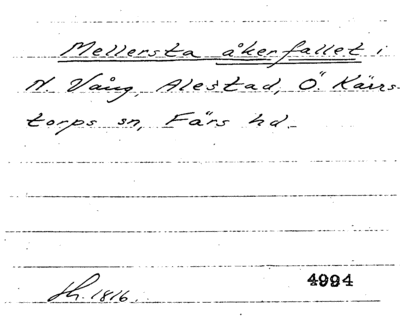 Mellersta åkerfallet i
N. Vång, Alestad, Ö. Kärrs-
torps sn, Färs hd.
sh. 1816. 4994